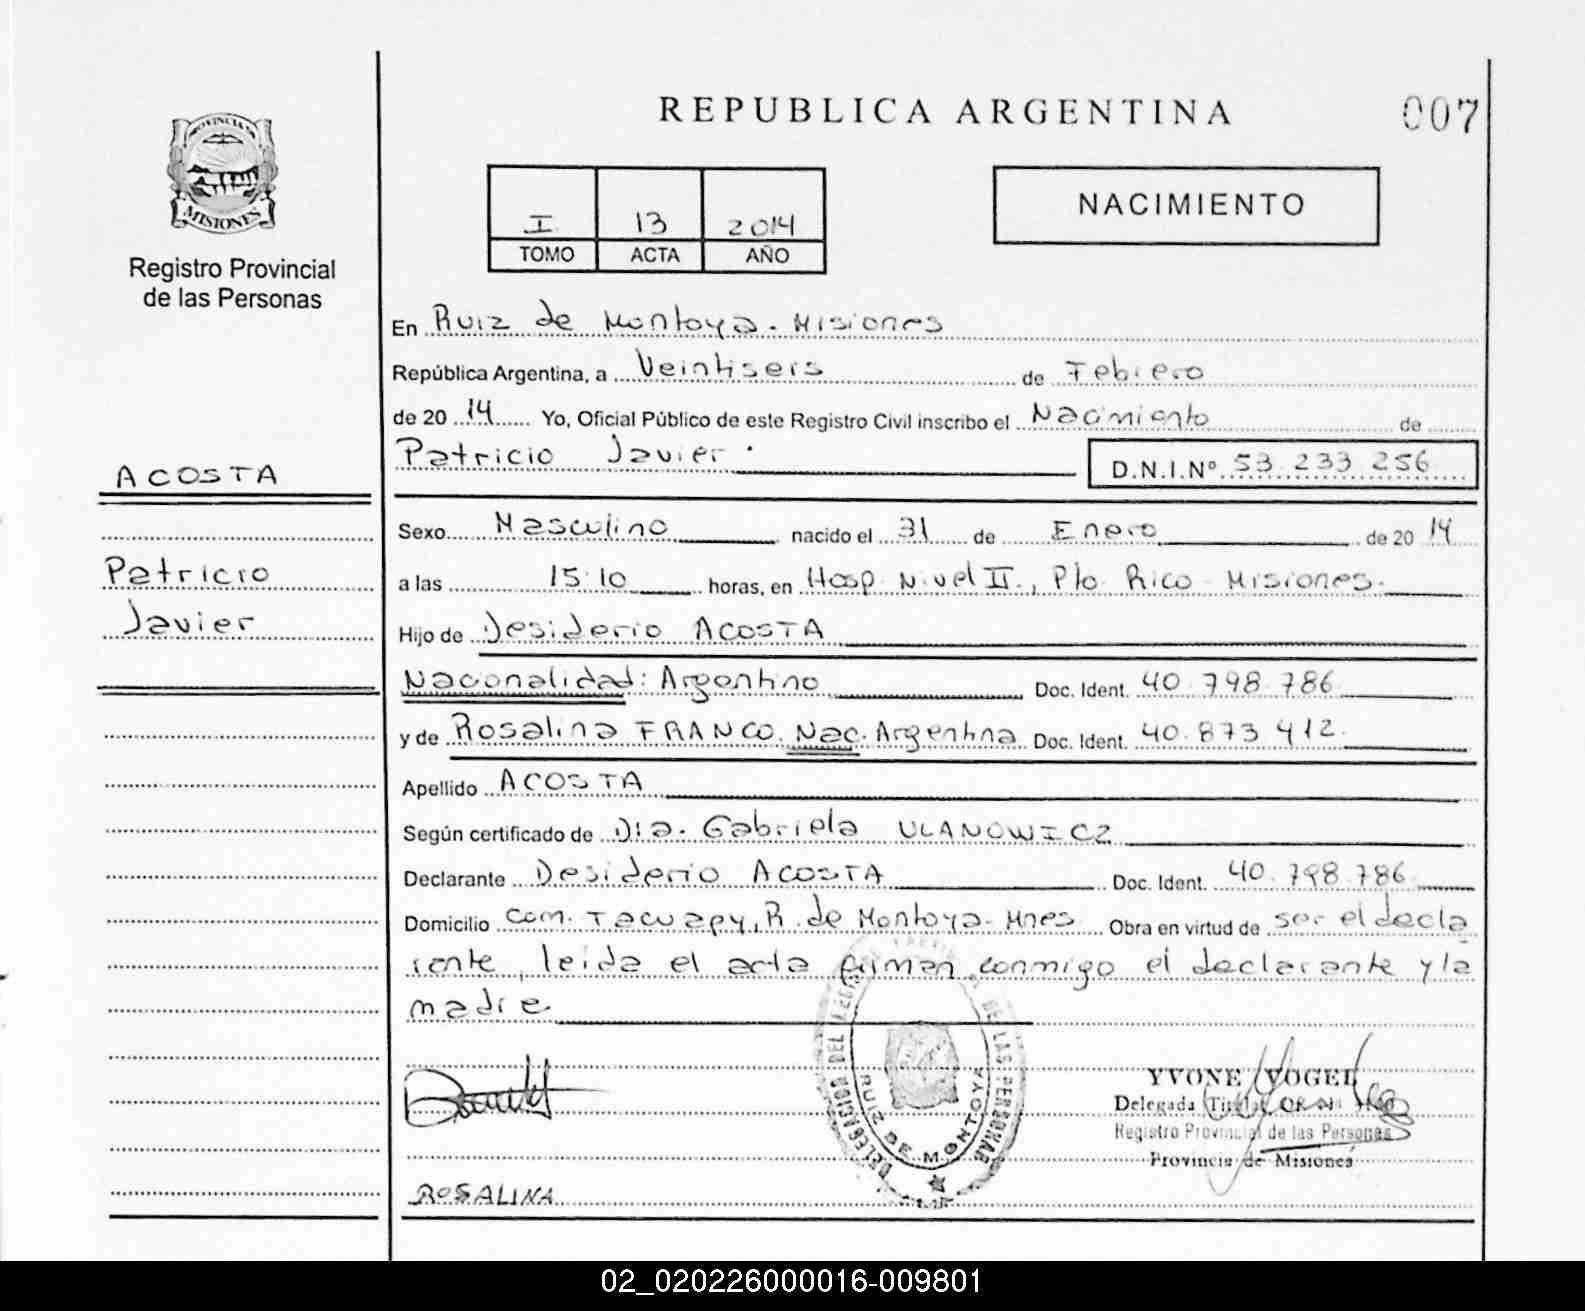 REPUBLICA ARGENTINA
007
PROVINCIA DE
MISIONES
Registro Provincial
de las Personas
I 13 2014
TOMO ACTA AÑO
NACIMIENTO
En Ruiz de Montoya - Misiones
República Argentina, a Veintiseis de Febrero
de 20 14 Yo, Oficial Público de este Registro Civil inscribo el Nacimiento de
Patricio Javier
D.N.I.Nº 53.233.256
ACOSTA
Patricio
Javier
Sexo Masculino nacido el 31 de Enero de 20 14
a las 15:10 horas, en Hosp. Nivel II., Pto Rico - Misiones.
Hijo de Desiderio ACOSTA
Nacionalidad: Argentino Doc. Ident. 40.798.786
y de Rosalina FRANCO. Nac. Argentina Doc. Ident. 40.873.412.
Apellido ACOSTA
Según certificado de Dra. Gabriela ULANOWICZ
Declarante Desiderio ACOSTA Doc. Ident. 40.798.786
Domicilio Com. Tacuapy, R. de Montoya - Mnes Obra en virtud de ser el decla
rante, leida el acta firman conmigo el declarante y la
madre
DELEGACION DEL REGISTRO DE LAS PERSONAS
RUIZ DE MONTOYA
YVONE VOGEL
Delegada Titular
Registro Provincial de las Personas
Provincia de Misiones
ROSALINA
02_020226000016-009801